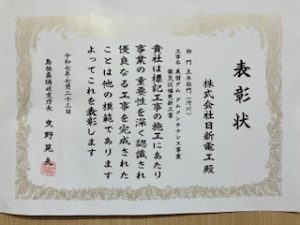 表彰状
株式会社日新電工殿
部門 土木部門(河川)
工事名 美田ダム ダムメンテナンス事業
電気設備更新工事
貴社は標記工事の施工にあたり
事業の重要性を深く認識され
優良なる工事を完成された
ことは他の模範であります
よってこれを表彰します
令和七年七月二十三日
島根県隠岐支庁長